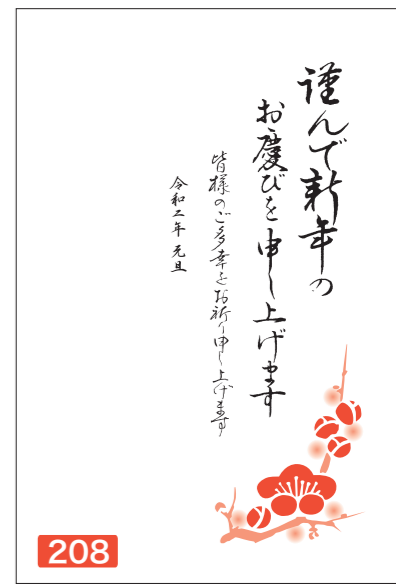 謹んで新年の
お慶びを申し上げます
皆様のご多幸をお祈り申し上げます
令和二年 元旦
208